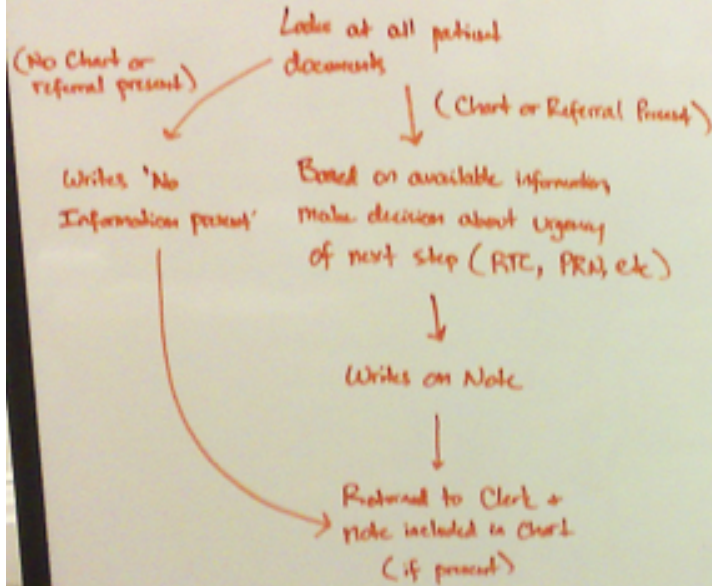 Looks at all patient
documents
(No Chart or
referral present)
(Chart or Referral Present)
Writes 'No
Information present'
Based on available information,
make decision about urgency
of next step (RTC, PRN, etc)
Writes on Note
Returned to Clerk +
note included in Chart
(if present)